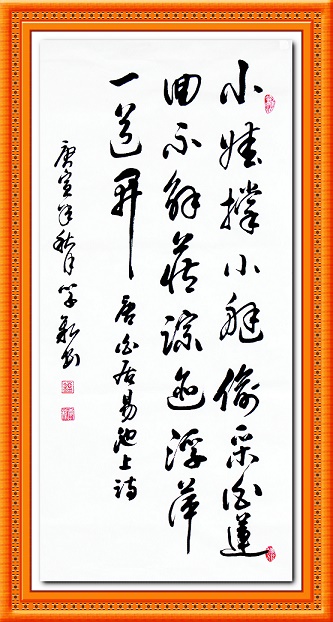 小娃撑小艇偷采白莲
回不解藏踪迹浮萍
一道开 唐白居易池上诗
庚寅年秋月